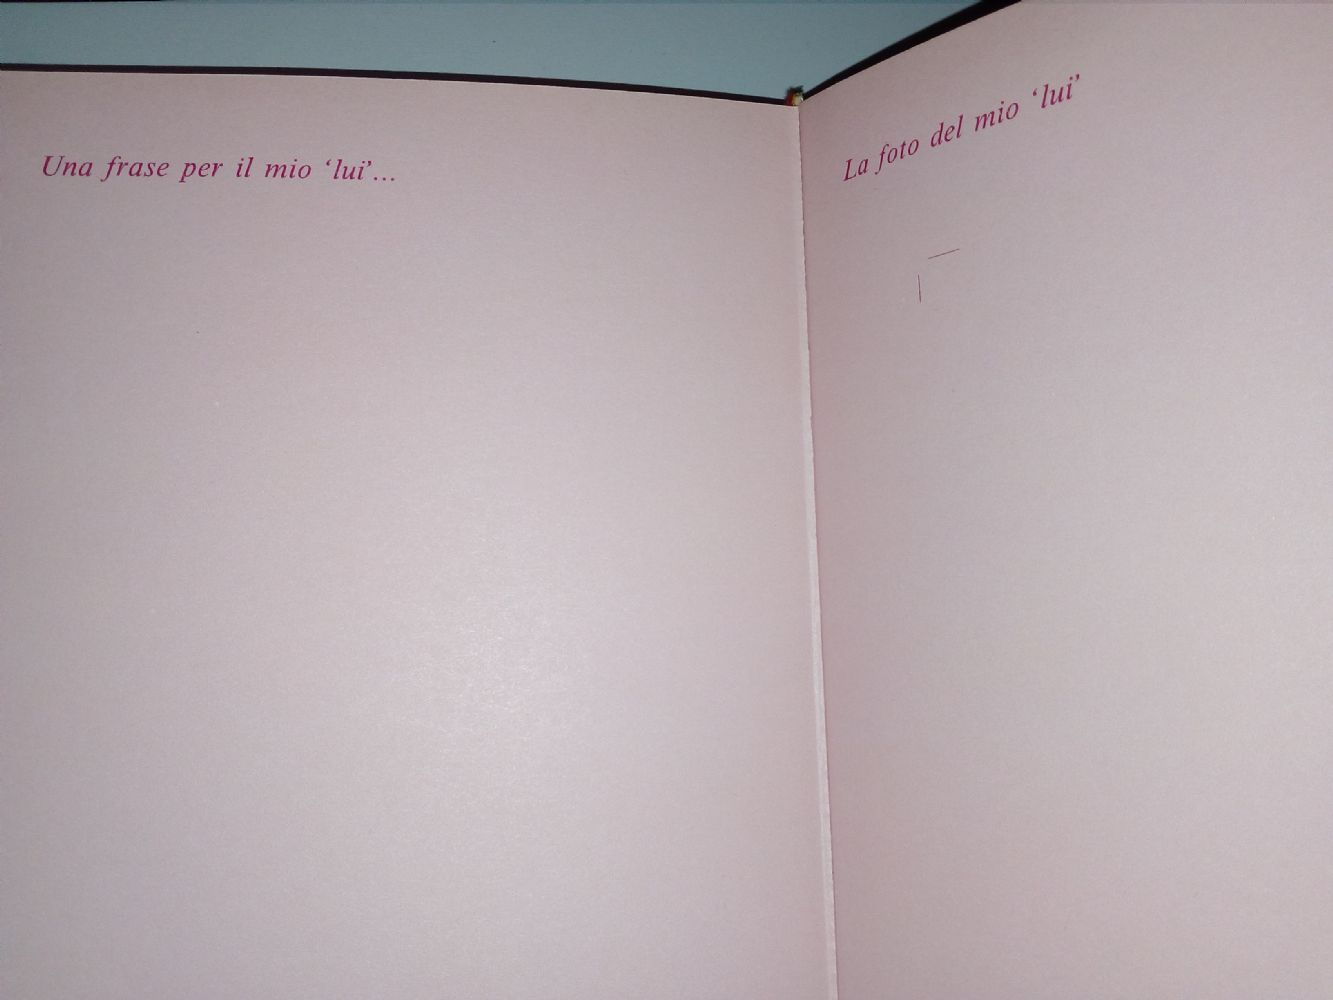 Una frase per il mio ‘lui’...
La foto del mio ‘lui’